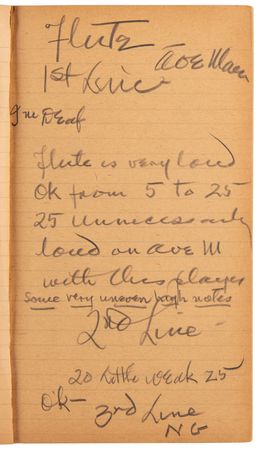 Flute
Ave Maria
1st Line
I'm Deaf
Flute is very loud
OK from 5 to 25
25 unnecessarily
loud on Ave M
with this player
Some very uneven high notes
2nd Line -
20 little weak 25
Ok -
3rd Line
NG